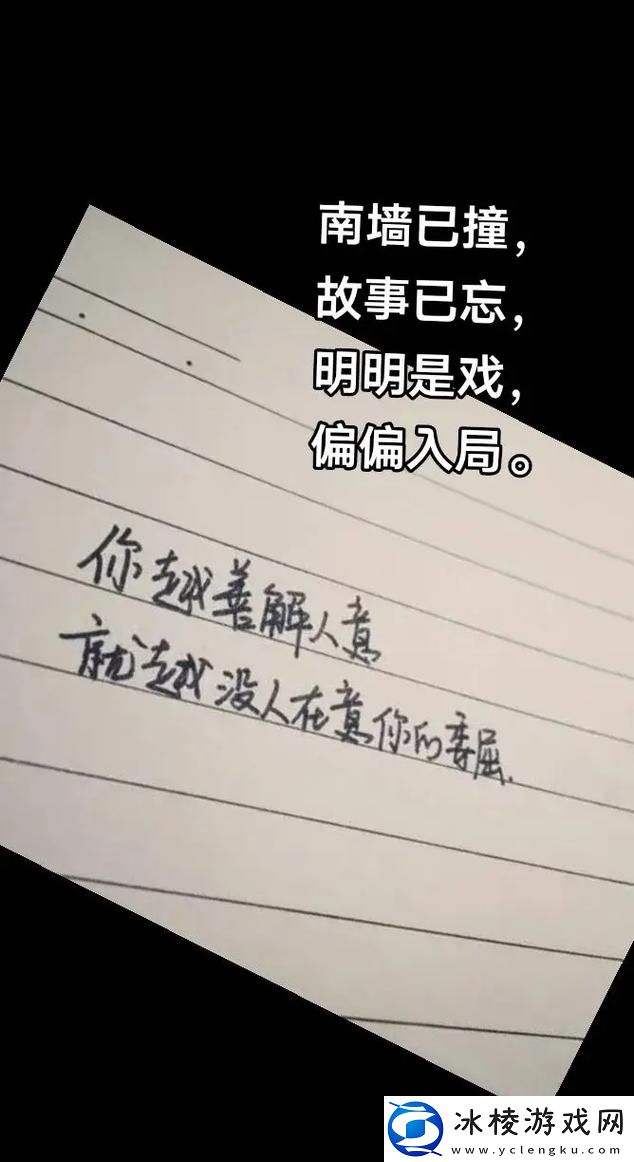 南墙已撞，
故事已忘，
明明是戏，
偏偏入局。
你越善解人意
就越没人在意你的委屈.
冰棱游戏网
www.yclengku.com